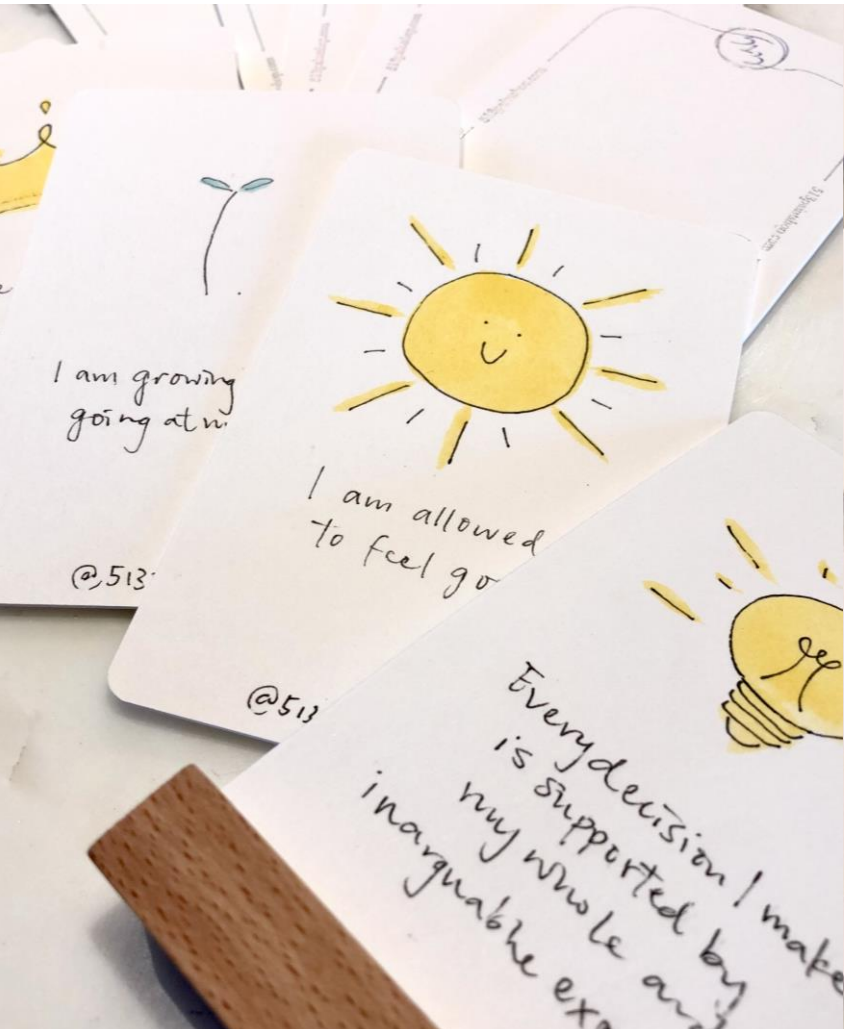 I am growing
going at
@513
I am allowed
to feel go
@513
Every decision I make
is supported by
my whole and
inarguable exp